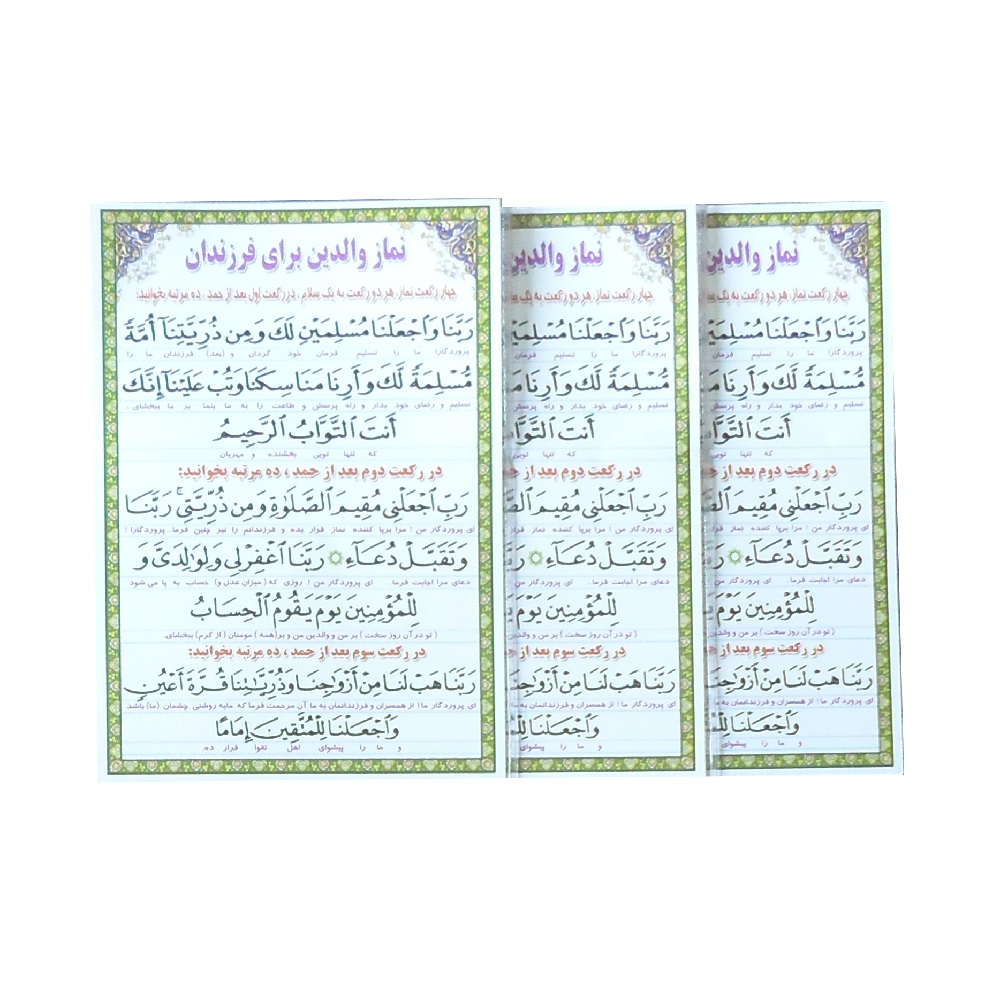 نماز والدین برای فرزندان
چهار رکعت نماز، هر دو رکعت به یک سلام، در رکعت اول بعد از حمد، ده مرتبه بخوانید:
رَبَّنَا وَاجْعَلْنَا مُسْلِمَيْنِ لَكَ وَمِن ذُرِّيَّتِنَآ أُمَّةً
پروردگارا ما را تسلیم فرمان خود گردان و (بعد) فرزندان ما را
مُسْلِمَةً لَّكَ وَأَرِنَا مَنَاسِكَنَا وَتُبْ عَلَيْنَآ إِنَّكَ
تسلیم و رضای خود بدار و راه پرستش و طاعت را به ما بنما بر ما ببخشای.
أَنتَ ٱلتَّوَّابُ ٱلرَّحِيمُ
که تنها تویی بخشنده و مهربان
در رکعت دوم بعد از حمد، ده مرتبه بخوانید:
رَبِّ ٱجْعَلْنِي مُقِيمَ ٱلصَّلَوٰةِ وَمِن ذُرِّيَّتِي رَبَّنَا
ای پروردگار من! مرا برپا کننده نماز قرار بده و فرزندانم را نیز چنین فرما. پروردگارا!
وَتَقَبَّلْ دُعَآءِ رَبَّنَا ٱغْفِرْ لِي وَلِوَٰلِدَيَّ وَ
دعای مرا اجابت فرما. ای پروردگار من! روزی که (میزان عدل و) حساب به پا می شود
لِلْمُؤْمِنِينَ يَوْمَ يَقُومُ ٱلْحِسَابُ
(تو در آن روز سخت) بر من و والدین من و بر (همه) مومنان (از کرم) ببخشای.
در رکعت سوم بعد از حمد، ده مرتبه بخوانید:
رَبَّنَا هَبْ لَنَا مِنْ أَزْوَٰجِنَا وَذُرِّيَّٰتِنَا قُرَّةَ أَعْيُنٍ
ای پروردگار ما! از همسران و فرزندانمان به ما آن مرحمت فرما که مایه روشنی چشمان (ما) باشد.
وَٱجْعَلْنَا لِلْمُتَّقِينَ إِمَامًا
و ما را پیشوای اهل تقوا قرار ده.
نماز والدین
چهار رکعت نماز، هر دو رکعت به یک
رَبَّنَا وَاجْعَلْنَا
پروردگارا ما را تسلیم فرمان
مُسْلِمَةً لَّكَ وَأَرِنَا
تسلیم و رضای خود بدار و راه
أَنتَ
که تنها تویی
در رکعت دوم بعد از
رَبِّ ٱجْعَلْنِي مُقِيمَ
ای پروردگار من! مرا برپا کننده نماز قرار
وَتَقَبَّلْ دُعَآءِ
دعای مرا اجابت فرما. ای پروردگار من
لِلْمُؤْمِنِينَ يَوْمَ
(تو در آن روز سخت) بر من و
در رکعت سوم بعد از
رَبَّنَا هَبْ لَنَا مِنْ أَزْوَٰجِنَا
ای پروردگار ما! از همسران و فرزندانمان به
وَٱجْعَلْنَا
و ما را پیشوای
نماز والدین
چهار رکعت نماز، هر دو رکعت به یک
رَبَّنَا وَاجْعَلْنَا
پروردگارا ما را تسلیم فرمان
مُسْلِمَةً لَّكَ وَأَرِنَا
تسلیم و رضای خود بدار و راه
أَنتَ
که تنها تویی
در رکعت دوم بعد از
رَبِّ ٱجْعَلْنِي مُقِيمَ
ای پروردگار من! مرا برپا کننده نماز قرار
وَتَقَبَّلْ دُعَآءِ
دعای مرا اجابت فرما. ای پروردگار من
لِلْمُؤْمِنِينَ يَوْمَ
(تو در آن روز سخت) بر من و
در رکعت سوم بعد از
رَبَّنَا هَبْ لَنَا مِنْ أَزْوَٰجِنَا
ای پروردگار ما! از همسران و فرزندانمان به
وَٱجْعَلْنَا
و ما را پیشوای